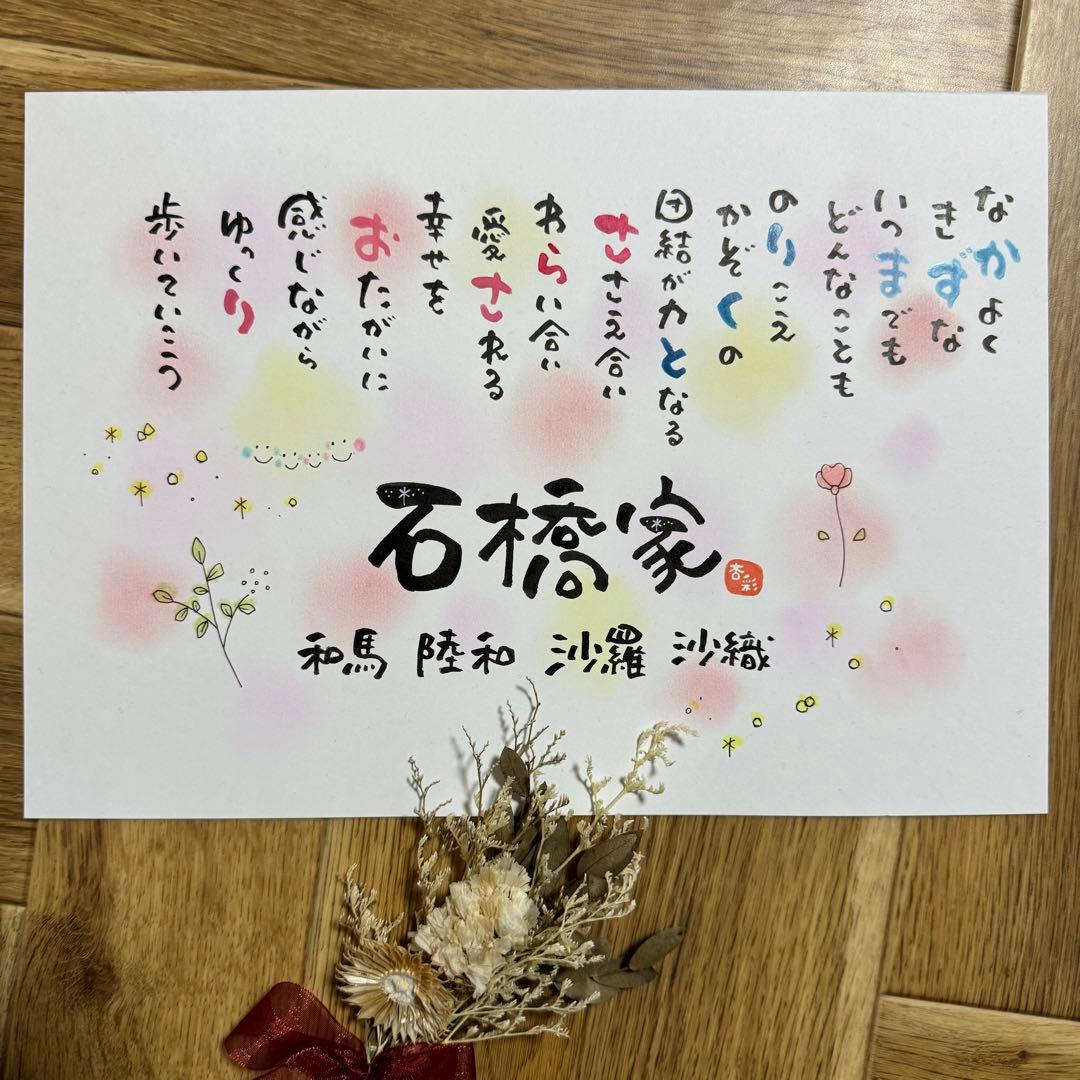 なかよく
きずな
いつまでも
どんなことも
のりこえ
かぞくの
団結が力となる
ささえ合い
わらい合い
愛される
幸せを
おたがいに
感じながら
ゆっくり
歩いていこう
石橋家
杏彩
和馬 陸和 沙羅 沙織